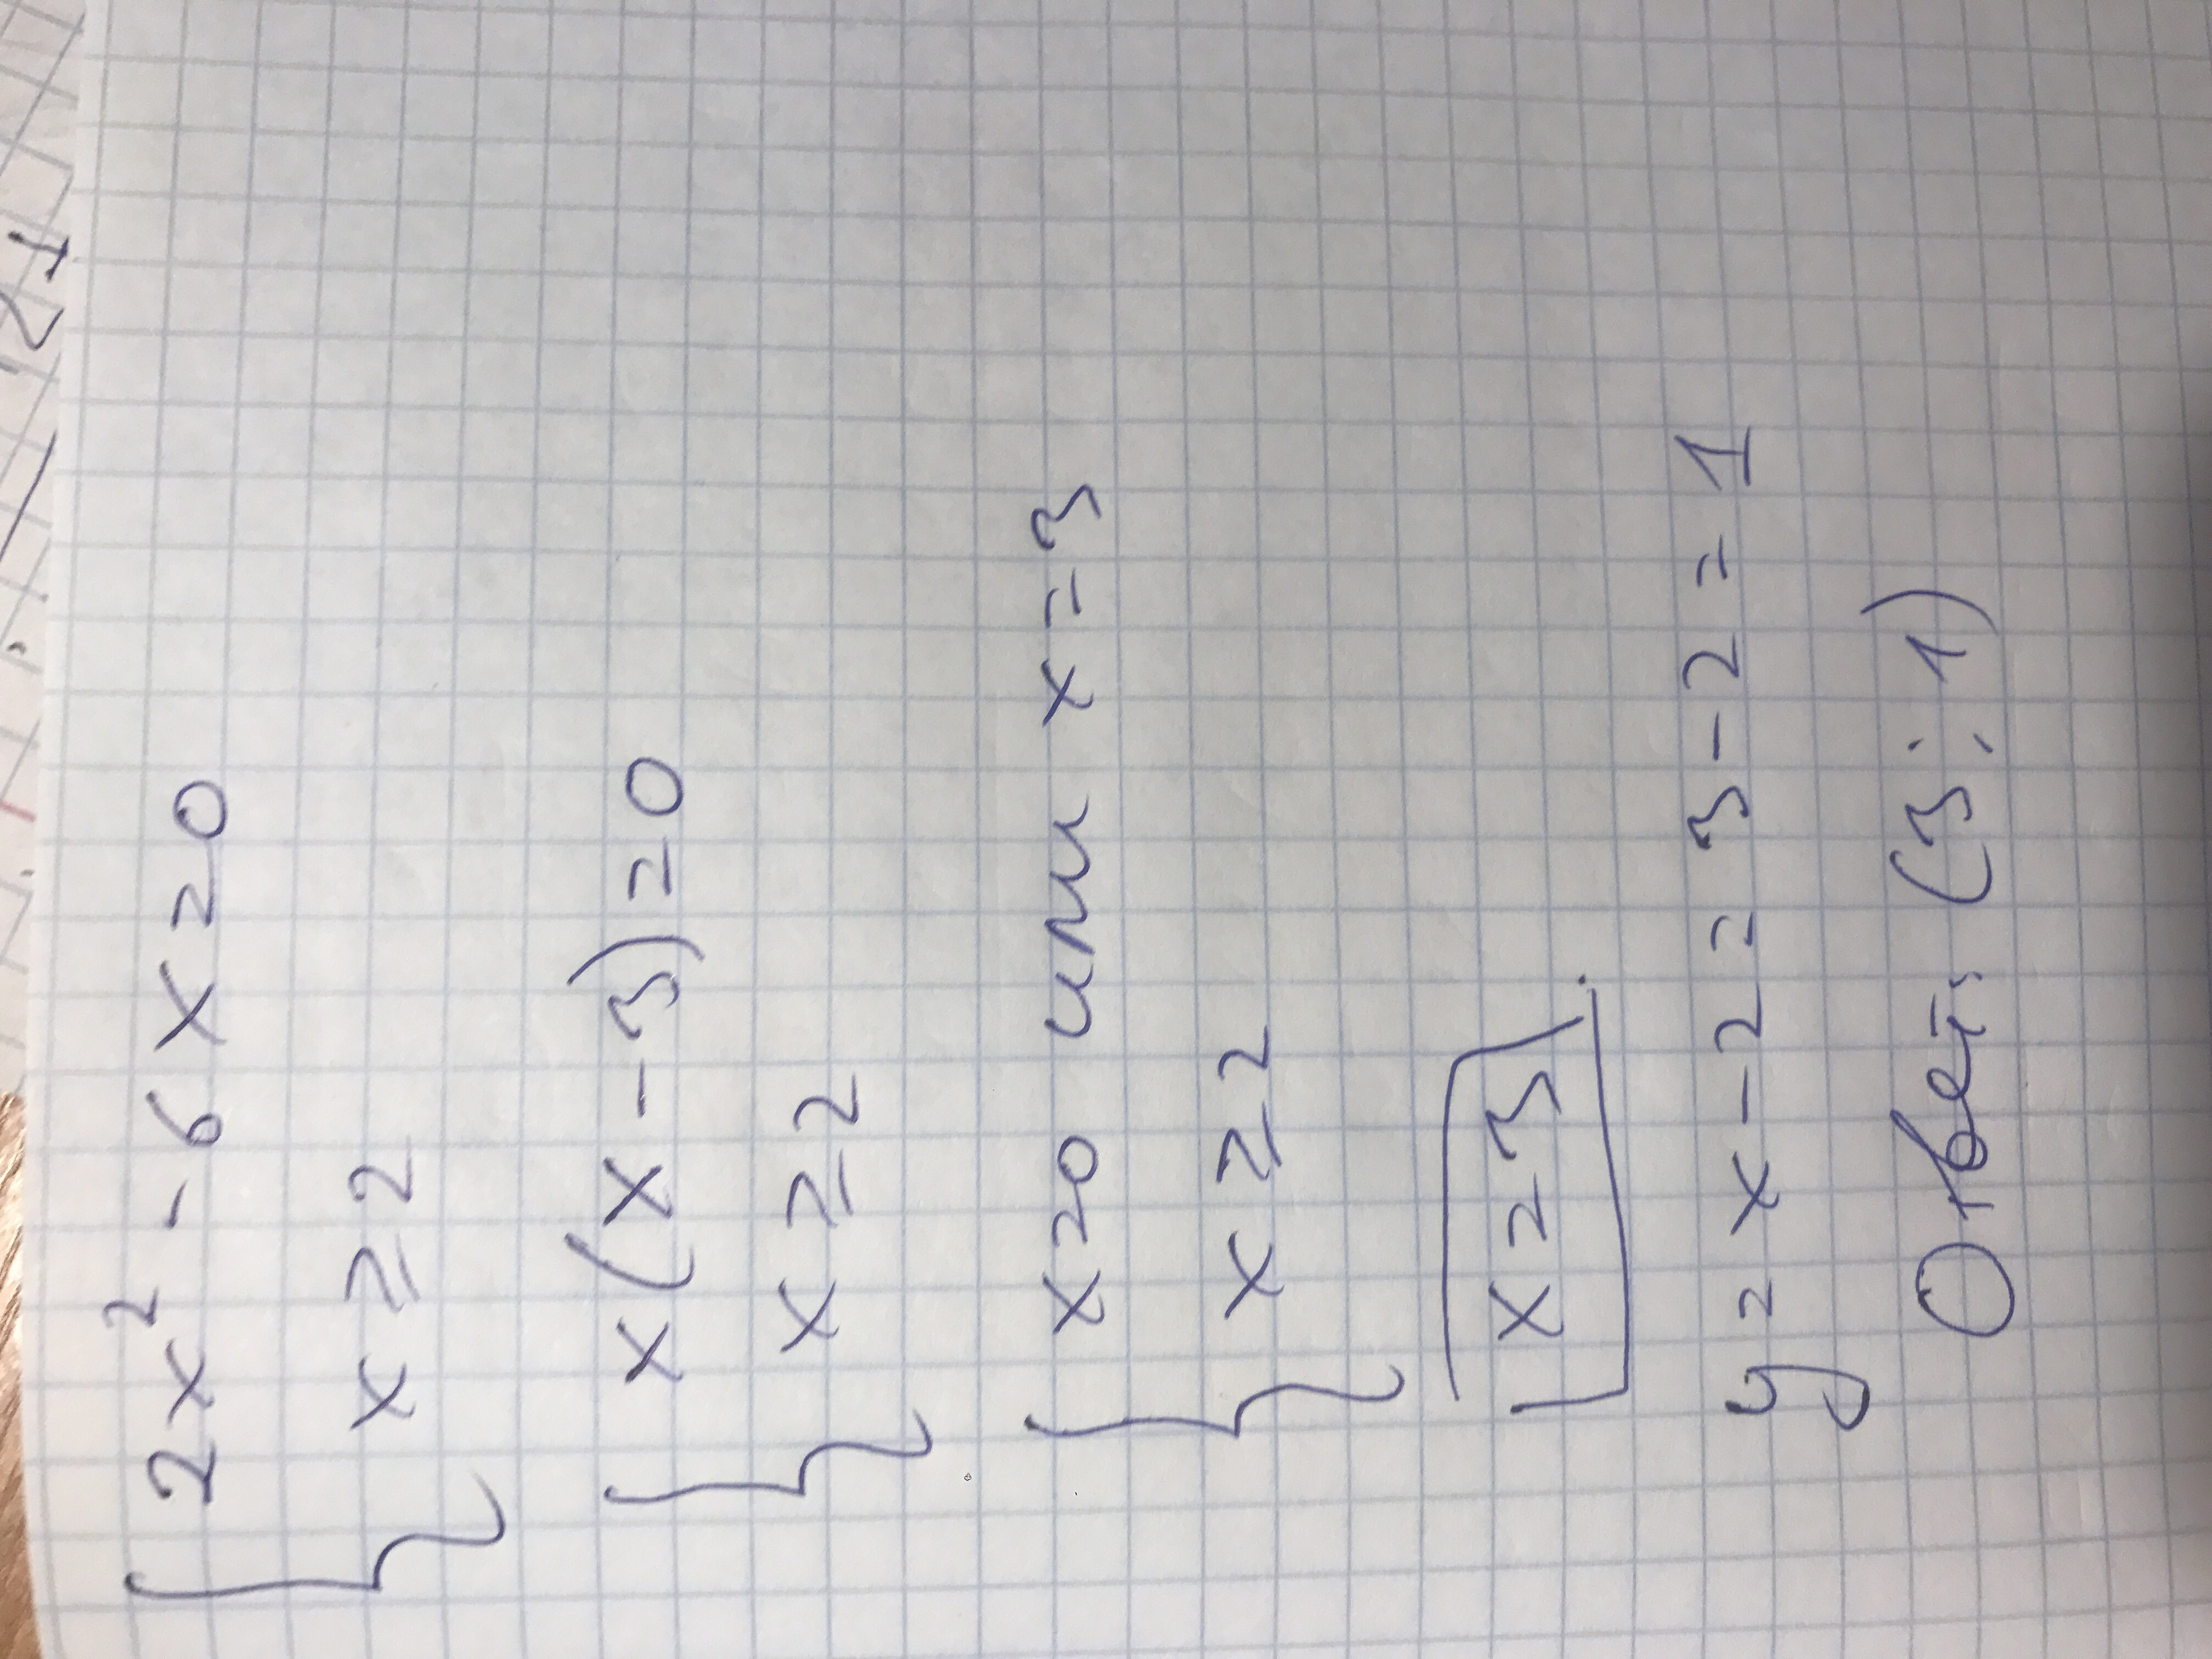 2x² - 6x = 0
x ≥ 2
x(x - 3) = 0
x ≥ 2
x = 0 или x = 3
x ≥ 2
x = 3
y = x - 2 = 3 - 2 = 1
Ответ: (3; 1)